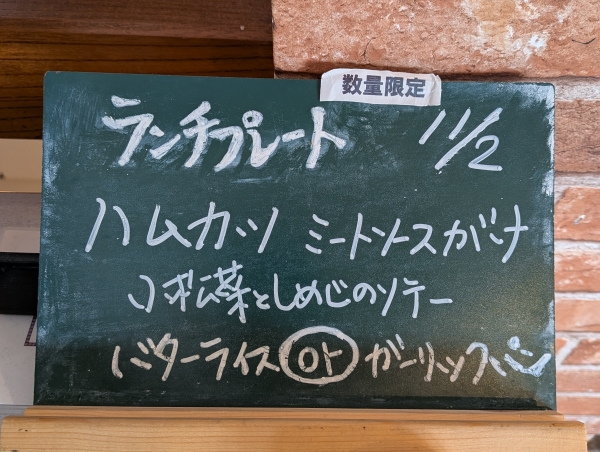 数量限定
ランチプレート 11/2
ハムカツ ミートソースがけ
小松菜としめじのソテー
バターライス or ガーリックパン